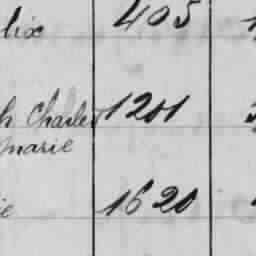 lix 405
h Charles 1201
marie
ie 1620